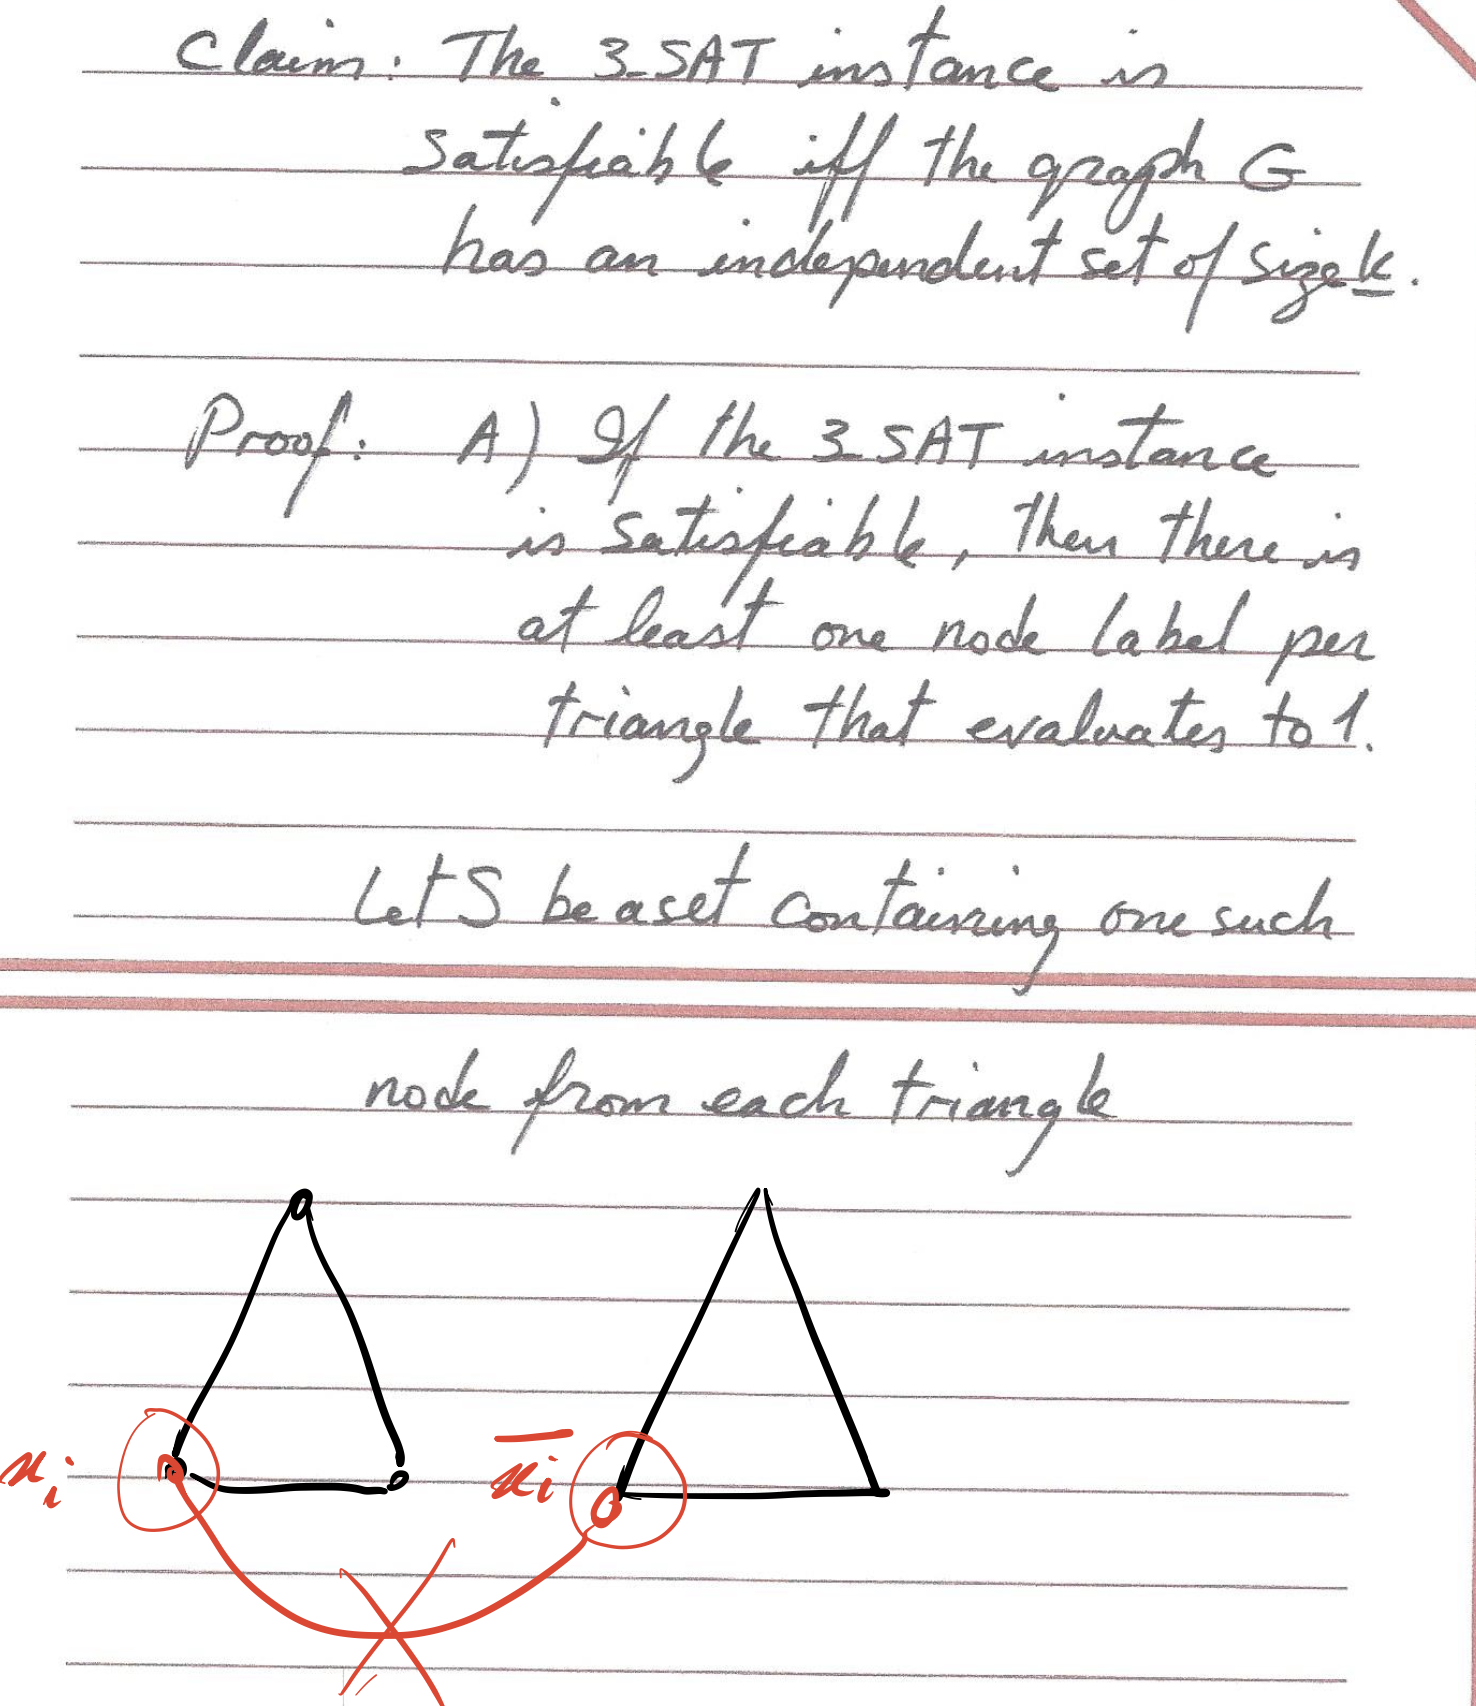 Claim: The 3-SAT instance is
satisfiable iff the graph G
has an independent set of size k.
Proof: A) If the 3-SAT instance
is satisfiable, then there is
at least one node label per
triangle that evaluates to 1.
Let S be a set containing one such
node from each triangle
xᵢ x̅ᵢ